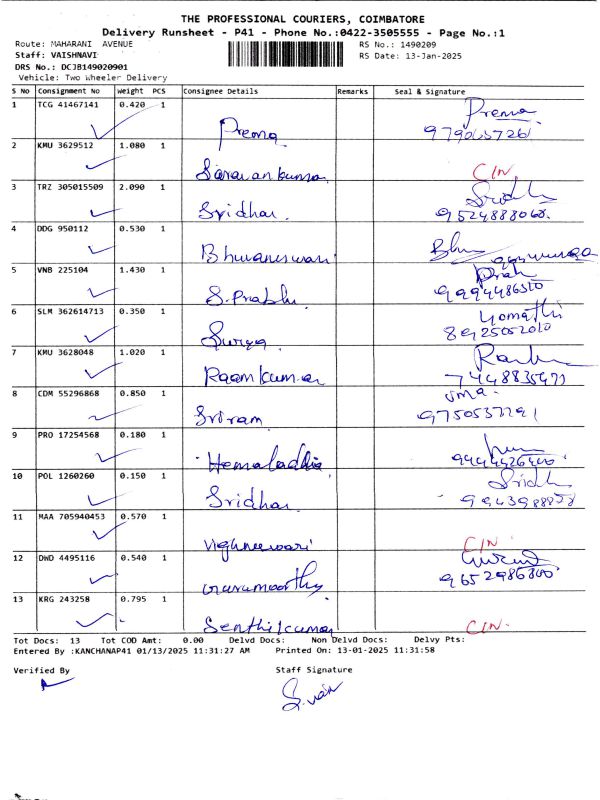 THE PROFESSIONAL COURIERS, COIMBATORE
Delivery Runsheet - P41 - Phone No.:0422-3505555 - Page No.:1
Route: MAHARANI AVENUE RS No.: 1490209
Staff: VAISHNAVI RS Date: 13-Jan-2025
DRS No.: DCJB149020901
Vehicle: Two Wheeler Delivery
S No Consignment No Weight PCS Consignee Details Remarks Seal & Signature
1 TCG 41467141 0.420 1 Prema Prema
2 KMU 3629512 1.080 1 Saravankumar C/N.
3 TRZ 305015509 2.090 1 Sridhar. Sridh
9524888068.
4 DDG 950112 0.530 1 Bhuvaneswari Bhu
5 VNB 225104 1.430 1 S.Prabhu Prab
9994486510
6 SLM 362614713 0.350 1 Surya Gomathi
8925052010
7 KMU 3628048 1.020 1 Raamkumar
8 CDM 55296868 0.850 1 Sriram uma.
9750537291
9 PRO 17254568 0.180 1
9444426400
10 POL 1260260 0.150 1 Sridhar Sridh
11 MAA 705940453 0.570 1 Vighneswari C/N.
12 DWD 4495116 0.540 1 Gurumoorthy
9652986800
13 KRG 243258 0.795 1 Senthilkumar C/N.
Tot Docs: 13 Tot COD Amt: 0.00 Delvd Docs: Non Delvd Docs: Delvy Pts:
Entered By :KANCHANAP41 01/13/2025 11:31:27 AM Printed On: 13-01-2025 11:31:58
Verified By Staff Signature